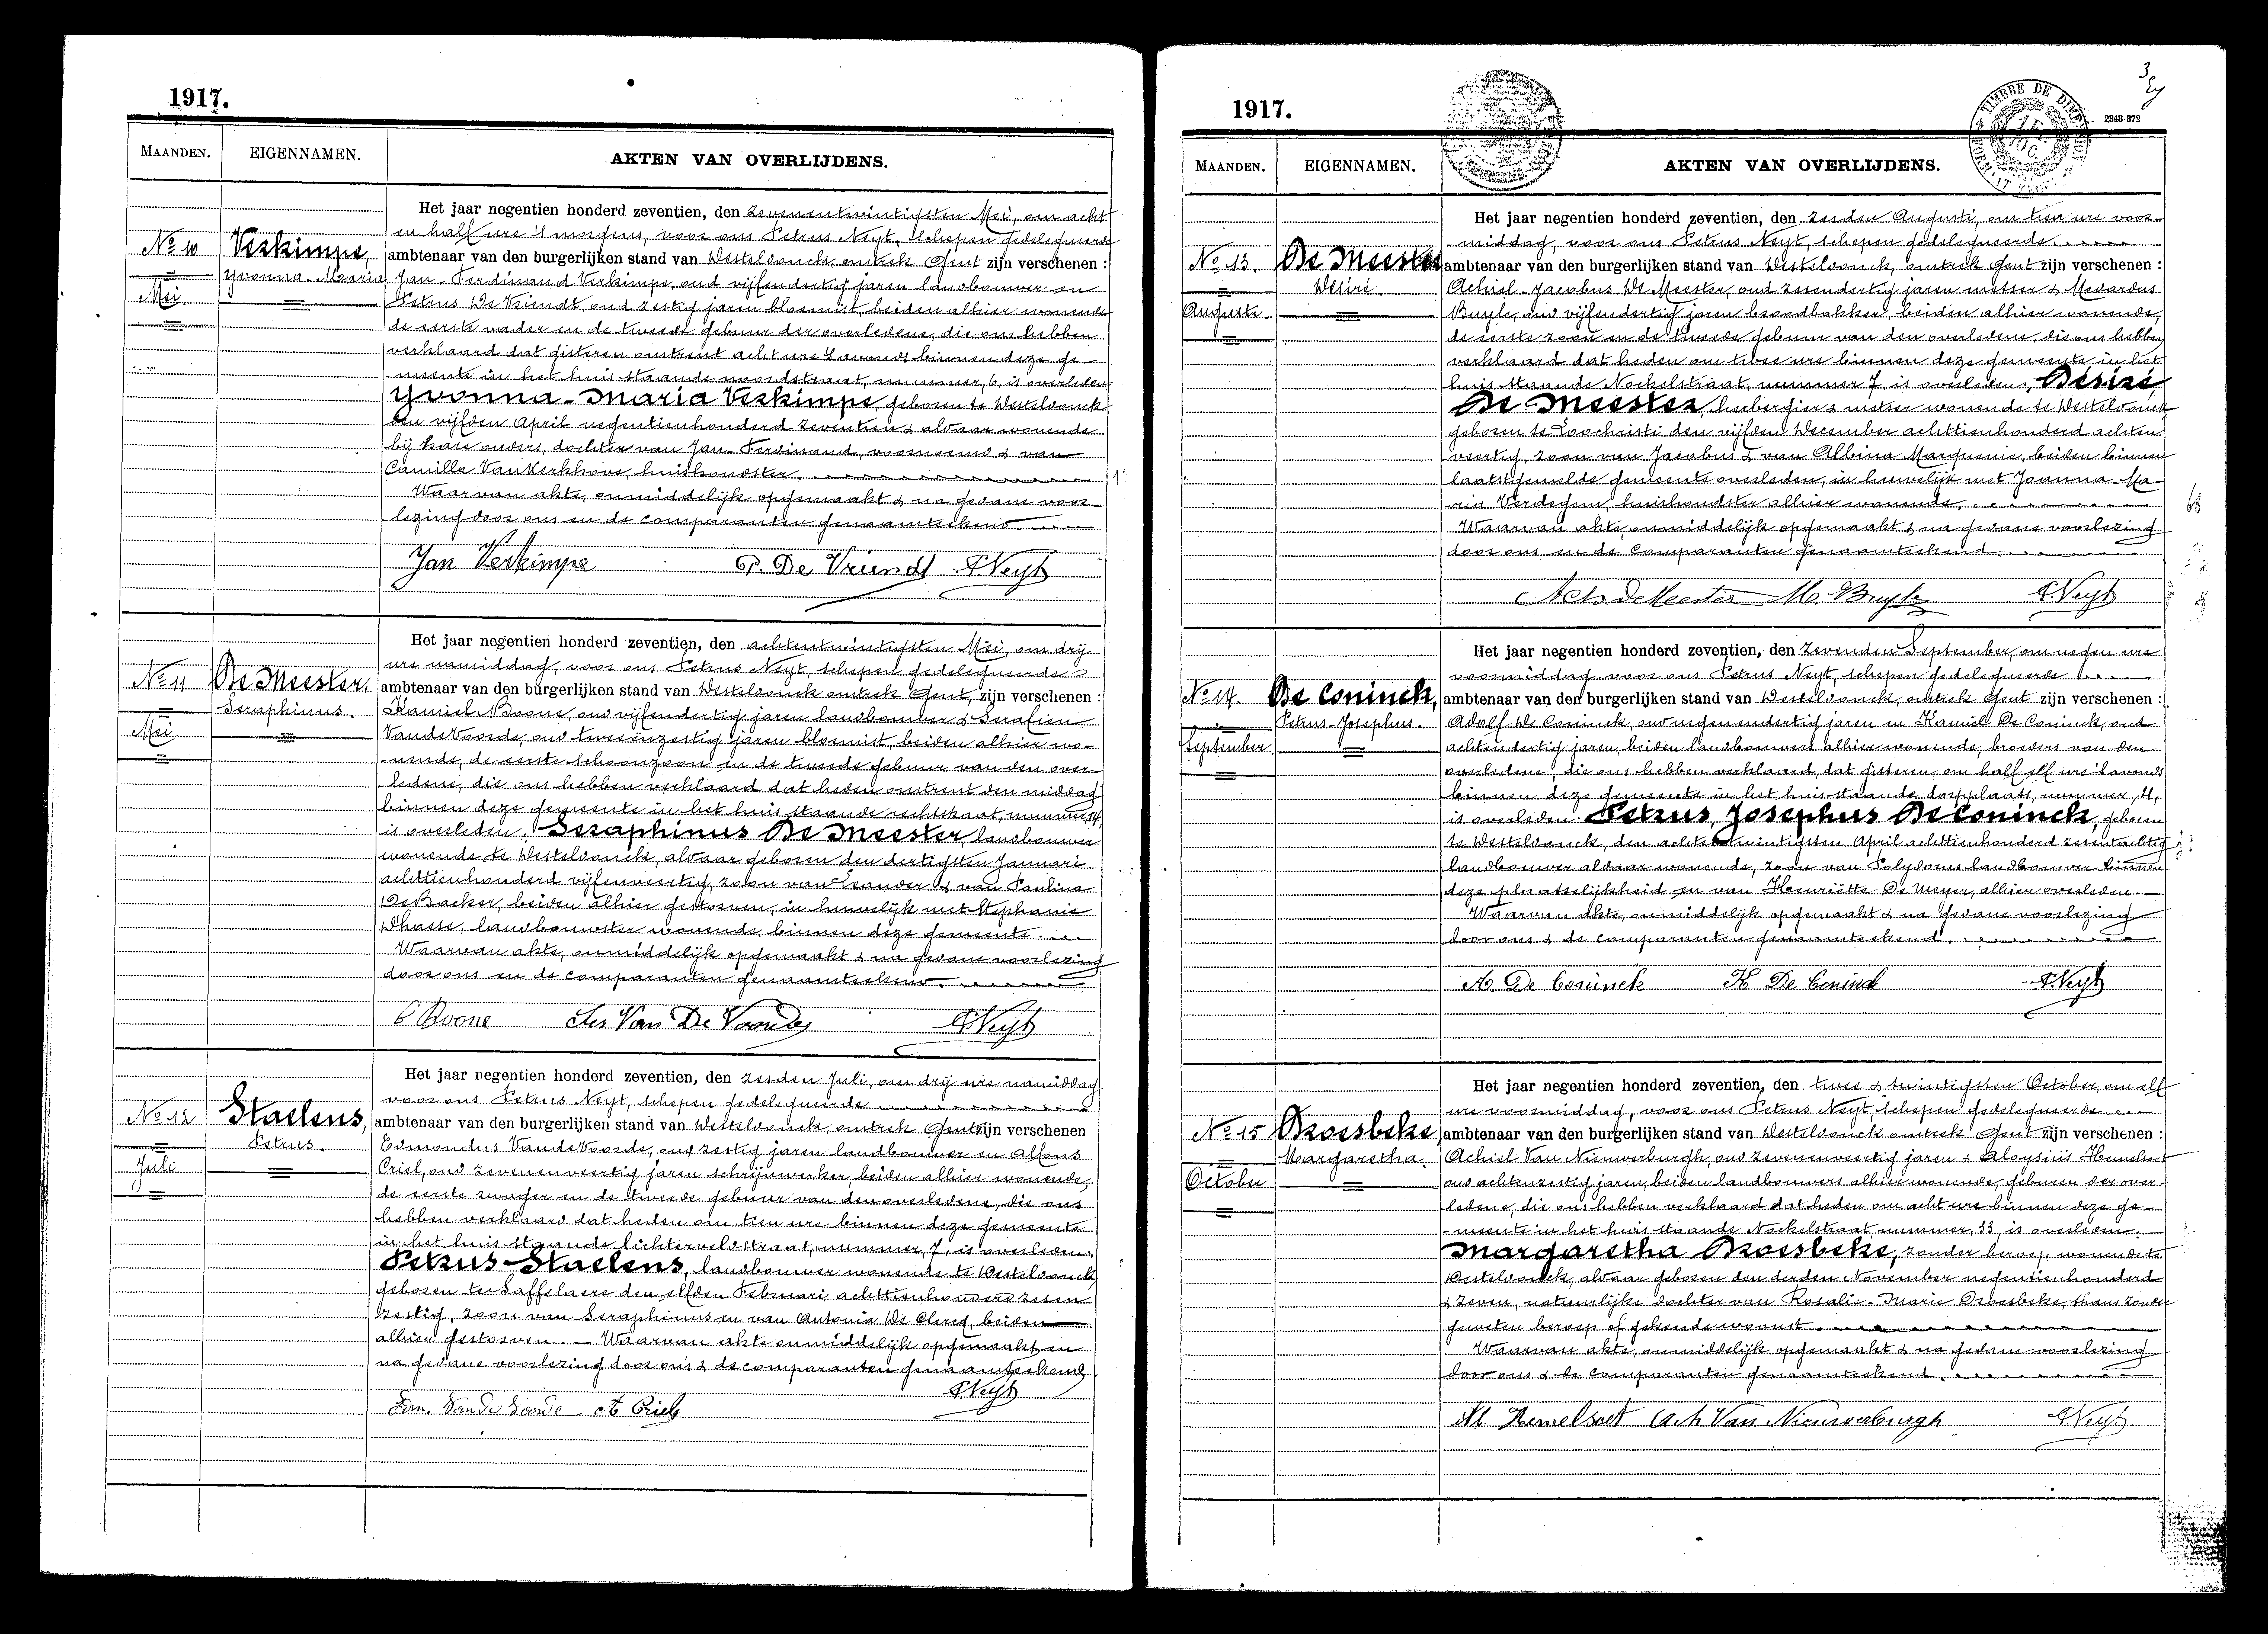 1917.
MAANDEN. EIGENNAMEN. AKTEN VAN OVERLIJDENS.
Het jaar negentien honderd zeventien, den zevenentwintigsten Mei, om acht
en half ure 's morgens, voor ons Petrus Neyt, schepen gedelegueerde
Nº 10 Verkimpe, ambtenaar van den burgerlijken stand van Westelvonck, omtrek Gent zijn verschenen :
Yvonna-Maria Jan-Ferdinand Verkimpe, oud vijfendertig jaren landbouwer en
Mei. Petrus De Vriendt, oud zestig jaren bloemist, beiden alhier wonende
de eerste vader en de tweede gebuur der overledene, die ons hebben
verklaard dat gisteren omtrent acht ure 's avonds binnen deze ge-
meente in het huis staande noordstraat, nummer, 6, is overleden
Yvonna-Maria Verkimpe, geboren te Westelvonck
den vijfden April negentienhonderd zeventien & aldaar wonende
bij hare ouders, dochter van Jan-Ferdinand, voornoemd & van
Camilla VanKerkhove, huishoudster.
Waarvan akte, onmiddelijk opgemaakt & na gedane voor-
lezing door ons en de comparanten genaamteekend.
Jan Verkimpe P. De Vriendt PNeyt
Het jaar negentien honderd zeventien, den achtentwintigsten Mei, om drij
ure namiddag, voor ons Petrus Neyt, schepen gedelegueerde
Nº 11 De Meester, ambtenaar van den burgerlijken stand van Westelvonck omtrek Gent, zijn verschenen :
Seraphinus. Kamiel Boone, oud vijfendertig jaren landbouwer & Serafien
Mei. VandeVoorde, oud tweeenzestig jaren bloemist, beiden alhier wo-
nende, de eerste schoonzoon en de tweede gebuur van den over-
ledene, die ons hebben verklaard dat heden omtrent den middag
binnen deze gemeente in het huis staande rechtstraat, nummer, 14,
is overleden. Seraphinus De Meester, landbouwer
wonende te Westelvonck, aldaar geboren den dertigsten Januari
achttienhonderd vijfenveertig, zoon van Leander & van Paulina
DeBacker, beiden alhier gestorven, in huwelijk met Stephanie
Dhaese, landbouwster wonende binnen deze gemeente.
Waarvan akte, onmiddelijk opgemaakt & na gedane voorlezing
door ons en de comparanten genaamteekend.
C Boone Ser Van De Voorde PNeyt
Het jaar negentien honderd zeventien, den zesden Juli, om drij ure namiddag
voor ons Petrus Neyt, schepen gedelegueerde
Nº 12 Staelens, ambtenaar van den burgerlijken stand van Westelvonck, omtrek Gent zijn verschenen
Petrus. Edmondus VandeVoorde, oud zestig jaren landbouwer en Alfons
Juli Criel, oud zevenenveertig jaren schrijnwerker, beiden alhier wonende,
de eerste zwager en de tweede gebuur van den overledene, die ons
hebben verklaard dat heden om tien ure binnen deze gemeente
in het huis staande lichterveldstraat, nummer, 7, is overleden:
Petrus Staelens, landbouwer wonende te Westelvonck
geboren te Saffelaere den elfden Februari achttienhonderd zesen
zestig, zoon van Seraphinus en van Antonia De Clercq, beiden
alhier gestorven. — Waarvan akte onmiddelijk opgemaakt en
na gedane voorlezing door ons & de comparanten genaamteekend
PNeyt
Edm. Van de Voorde A Criel
1917.
2343-872
MAANDEN. EIGENNAMEN. AKTEN VAN OVERLIJDENS.
Het jaar negentien honderd zeventien, den zesden Augusti, om tien ure voor-
middag, voor ons Petrus Neyt, schepen gedelegueerde.
Nº 13. De Meester ambtenaar van den burgerlijken stand van Westelvonck, omtrek Gent zijn verschenen :
Désiré. Achiel-Jacobus De Meester, oud zesendertig jaren metser & Medardus
Augusti. Buyle, oud vijfendertig jaren broodbakker, beiden alhier wonende,
de eerste zoon en de tweede gebuur van den overledene, die ons hebben
verklaard dat heden om twee ure binnen deze gemeente in het
huis staande Nockelstraat, nummer 7 is overleden, Désiré
De Meester, herbergier & metser wonende te Westelvonck
geboren te Loochristi den vijfden December achttienhonderd achten
veertig, zoon van Jacobus & van Albina Marquenie, beiden binnen
laatstgemelde gemeente overleden, in huwelijk met Joanna Ma-
ria Verdegem, huishoudster alhier wonende.
Waarvan akte, onmiddelijk opgemaakt & na gedane voorlezing
door ons en de comparanten genaamteekend.
Ach De Meester M. Buyle PNeyt
Het jaar negentien honderd zeventien, den zevenden September, om negen ure
voormiddag voor ons Petrus Neyt, schepen gedelegueerde
Nº 14. De Coninck, ambtenaar van den burgerlijken stand van Westelvonck, omtrek Gent zijn verschenen :
Petrus-Josephus. Adolf De Coninck, oud negenendertig jaren en Kamiel De Coninck, oud
September achtendertig jaren, beiden landbouwers alhier wonende, broeders van den
overledene, die ons hebben verklaard, dat gisteren om half elf ure 's avonds
binnen deze gemeente in het huis staande dorpplaats, nummer, 11,
is overleden: Petrus Josephus De Coninck, geboren
te Westelvonck, den achtentwintigsten April achttienhonderd zesentachtig
landbouwer aldaar wonende, zoon van Polydorus landbouwer binnen
deze plaatselijkheid en van Henriëtte De Meyer, alhier overleden.
Waarvan akte, onmiddelijk opgemaakt & na gedane voorlezing
door ons & de comparanten genaamteekend.
A. De Coninck K De Coninck PNeyt
Het jaar negentien honderd zeventien, den twee & twintigsten October, om elf
ure voormiddag, voor ons Petrus Neyt schepen gedelegueerde
Nº 15 Broesbeke ambtenaar van den burgerlijken stand van Westelvonck omtrek Gent zijn verschenen :
Margaretha. Achiel Van Nieuwerburgh, oud zevenenveertig jaren & Aloysiüs Hemelsoet
October oud achtenzestig jaren, beiden landbouwers alhier wonende, geburen der over-
ledene, die ons hebben verklaard dat heden om acht ure binnen deze ge-
meente in het huis staande Nockelstraat nummer, 33, is overleden.
Margaretha Broesbeke, zonder beroep, wonende te
Westelvonck, aldaar geboren den derden November negentienhonderd
& zeven, natuurlijke dochter van Rosalie-Marie Broesbeke, thans zonder
geweten beroep of gekende woonst.
Waarvan akte, onmiddelijk opgemaakt & na gedane voorlezing
door ons & de comparanten genaamteekend.
Al. Hemelsoet Ach Van Nieuwerburgh PNeyt